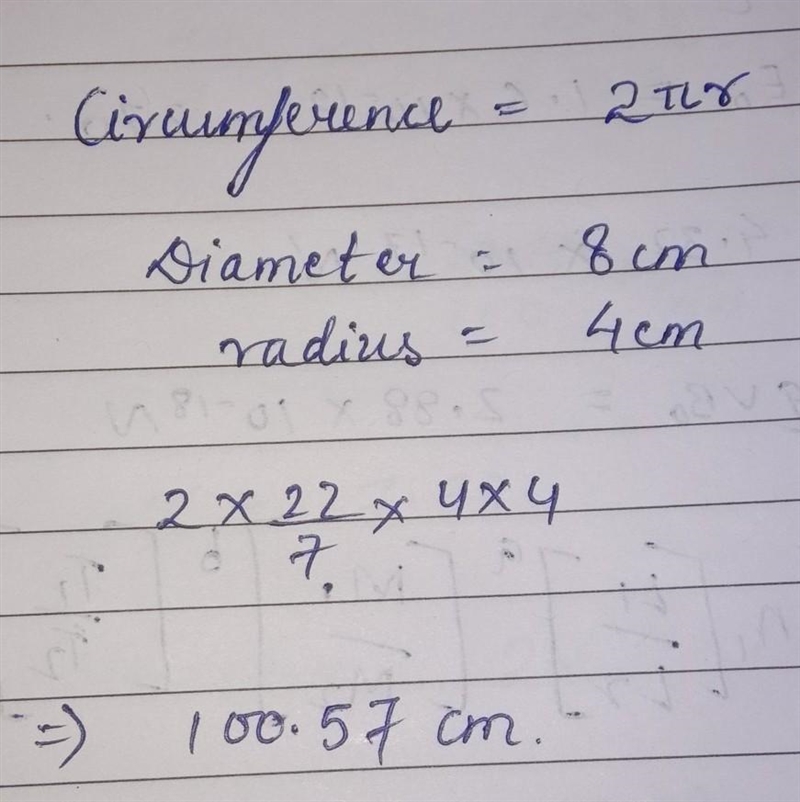 Circumference = 2πr
Diameter = 8 cm
radius = 4 cm
2 × 22/7 × 4 × 4
=> 100.57 cm.